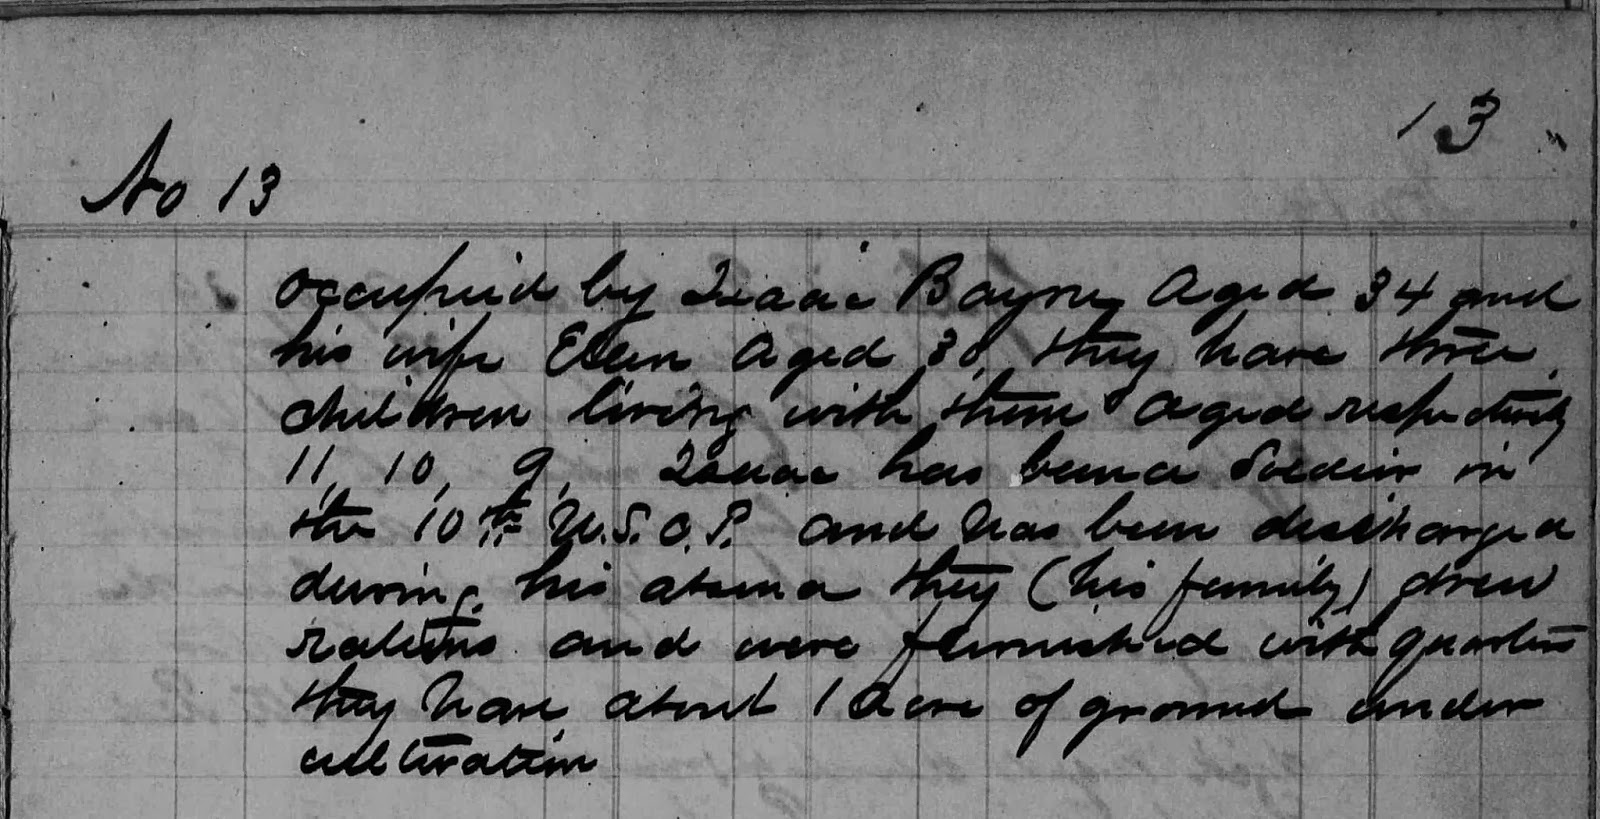 13
No 13
occupied by Isaac Bayne, Aged 34 and
his wife Ellen Aged 30, they have three
children living with them Aged respectively
11, 10, 9, Isaac has been a Soldier in
the 10th U.S.C.T. and has been discharged
during his absence they (his family) drew
rations and were furnished with quarters
they have about 1 Acre of ground under
cultivation